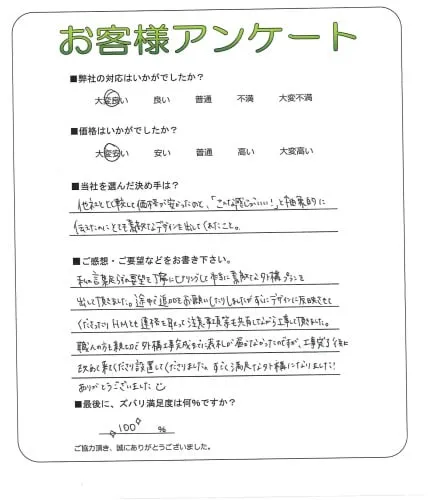 お客様アンケート
■弊社の対応はいかがでしたか？
大変良い 良い 普通 不満 大変不満
■価格はいかがでしたか？
大変安い 安い 普通 高い 大変高い
■当社を選んだ決め手は？
他社と比較して価格が安かったのと、「こんな感じがいい！」と抽象的に
伝えたのにとても素敵なデザインを出してくれたこと。
■ご感想・ご要望などをお書き下さい。
私の言葉足らずな要望を丁寧にヒアリングして本当に素敵な外構プランを
出して頂きました。途中で追加をお願いしたりしましたがすぐにデザインに反映させて
くださったりHMとも連絡を取って注意事項等も共有しながら工事して頂きました。
職人の方も親しみ 外構工事完成までに表札が届かなかったのですが、工事完了後に
改めて来てくださり設置してくださりました。すごく満足な外構になりました！
ありがとうございました
■最後に、ズバリ満足度は何%ですか？
100 %
ご協力頂き、誠にありがとうございました。